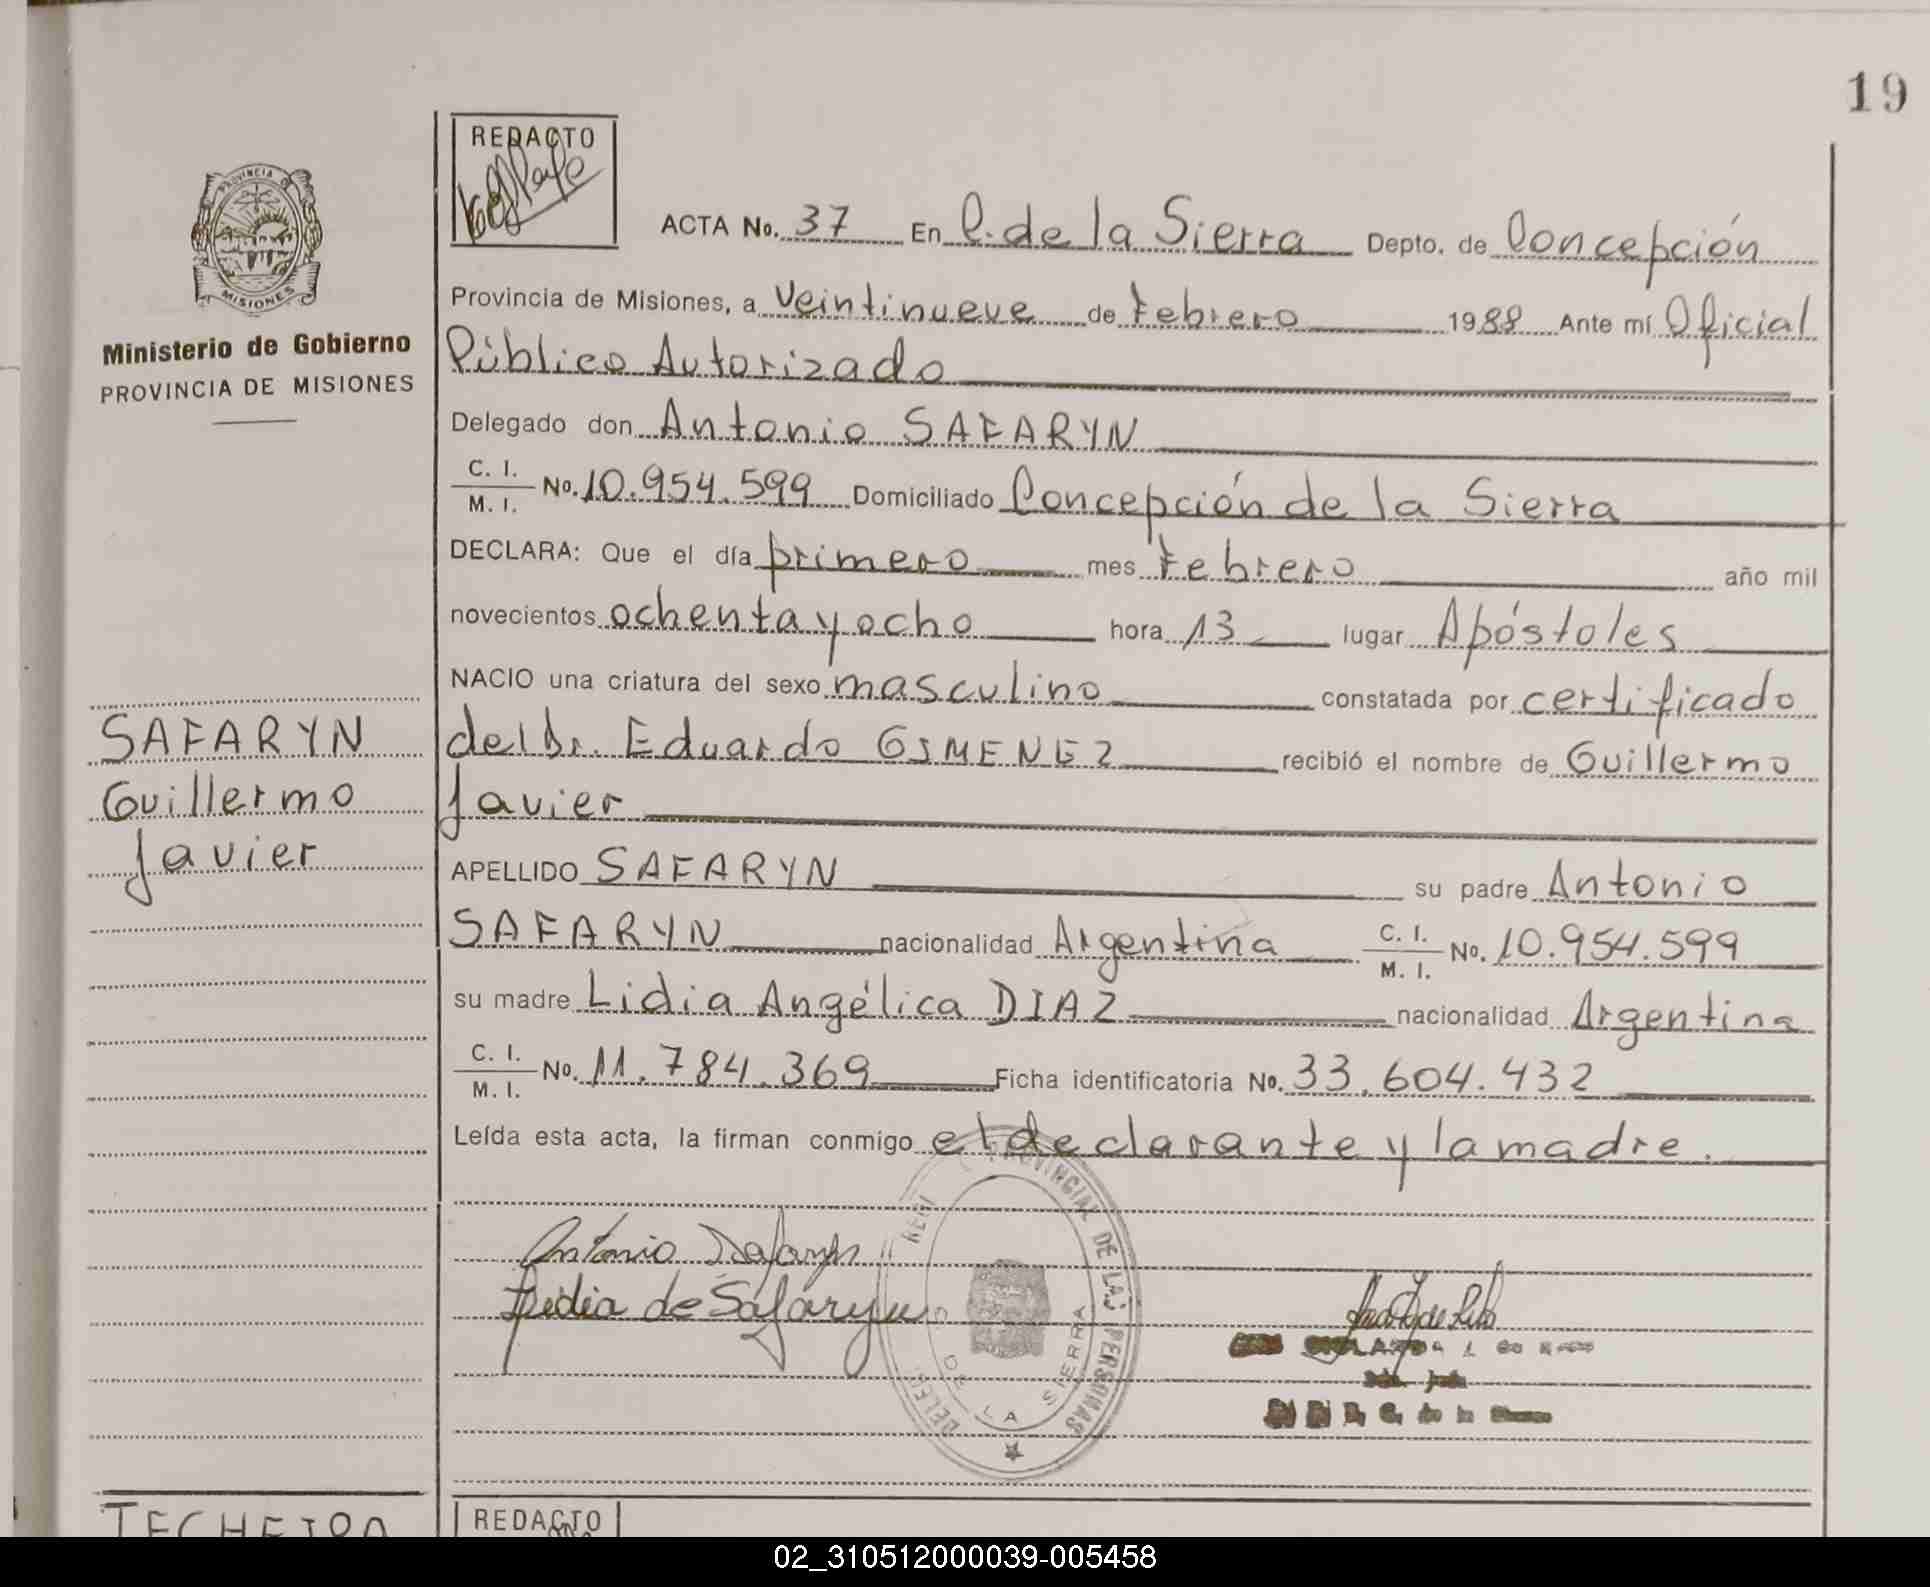 19
PROVINCIA DE
MISIONES
Ministerio de Gobierno
PROVINCIA DE MISIONES
SAFARYN
Guillermo
Javier
REDACTO
ACTA No. 37 En C. de la Sierra Depto. de Concepción
Provincia de Misiones, a Veintinueve de Febrero 1988 Ante mí Oficial
Público Autorizado
Delegado don Antonio SAFARYN
C. I.
M. I. No. 10.954.599 Domiciliado Concepción de la Sierra
DECLARA: Que el día primero mes Febrero año mil
novecientos ochenta y ocho hora 13 lugar Apóstoles
NACIO una criatura del sexo masculino constatada por certificado
del Dr. Eduardo GIMENEZ recibió el nombre de Guillermo
Javier
APELLIDO SAFARYN su padre Antonio
SAFARYN nacionalidad Argentina C. I. M. I. No. 10.954.599
su madre Lidia Angélica DIAZ nacionalidad Argentina
C. I.
M. I. No. 11.784.369 Ficha identificatoria No. 33.604.432
Leída esta acta, la firman conmigo el declarante y la madre.
Antonio Safaryn
Lidia de Safaryn
PROVINCIAL DE LAS PERSONAS
DE LA SIERRA
TECHEIRA
REDACTO
02_310512000039-005458